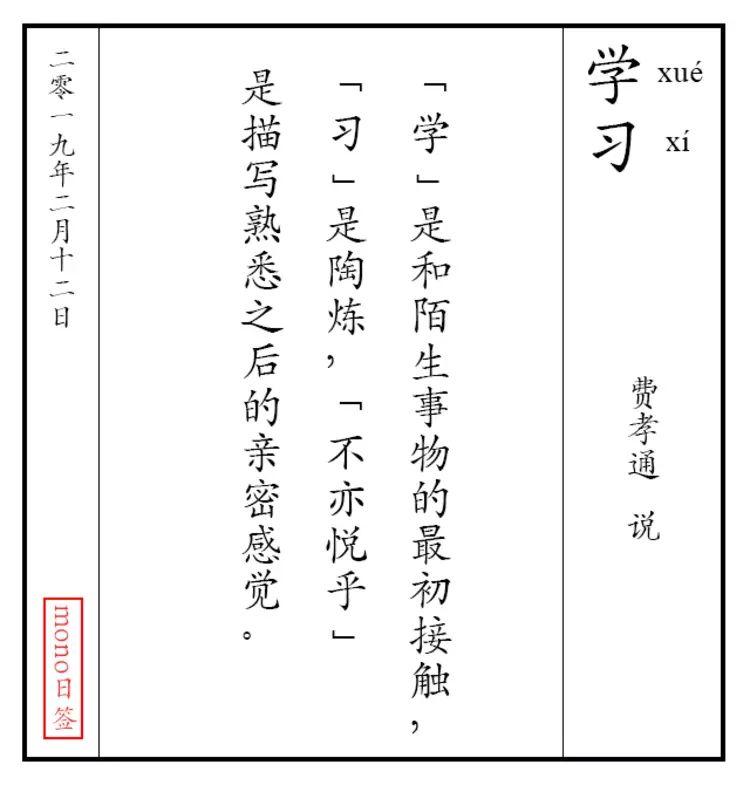 学 xué
习 xí
费孝通 说
「学」是和陌生事物的最初接触，
「习」是陶炼，「不亦悦乎」
是描写熟悉之后的亲密感觉。
二零一九年二月十二日
mono日签